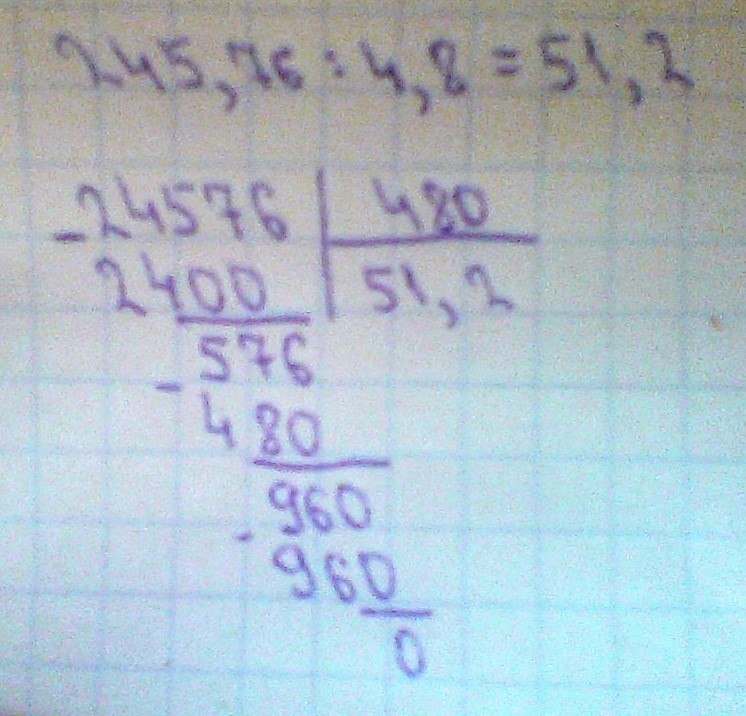 245,76 : 4,8 = 51,2
-24576 | 480
2400 | 51,2
576
- 480
960
- 960
0